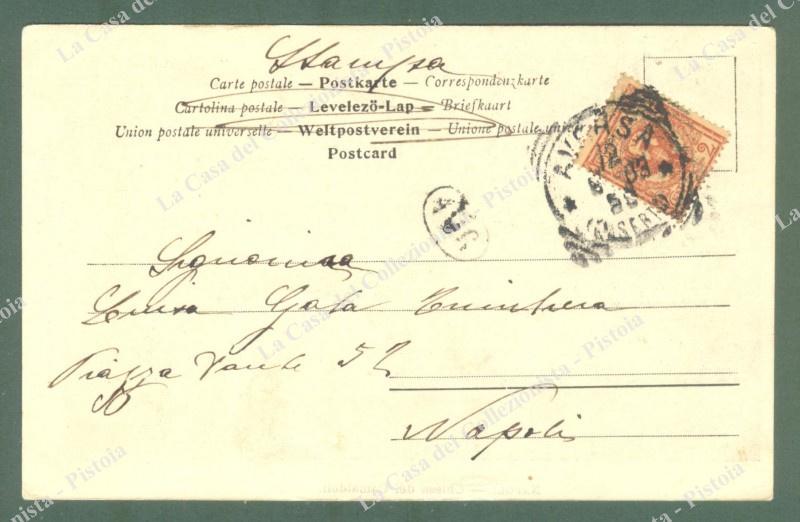 Stampa
Carte postale – Postkarte – Correspondenzkarte
Cartolina postale – Levelező-Lap – Briefkaart
Union postale universelle – Weltpostverein – Unione postale univ
Postcard
AVERSA
12
03
(CASERTA)
2
Signorina
Luisa Gata
Piazza Dante 52
Napoli
La Casa del Collezionista - Pistoia